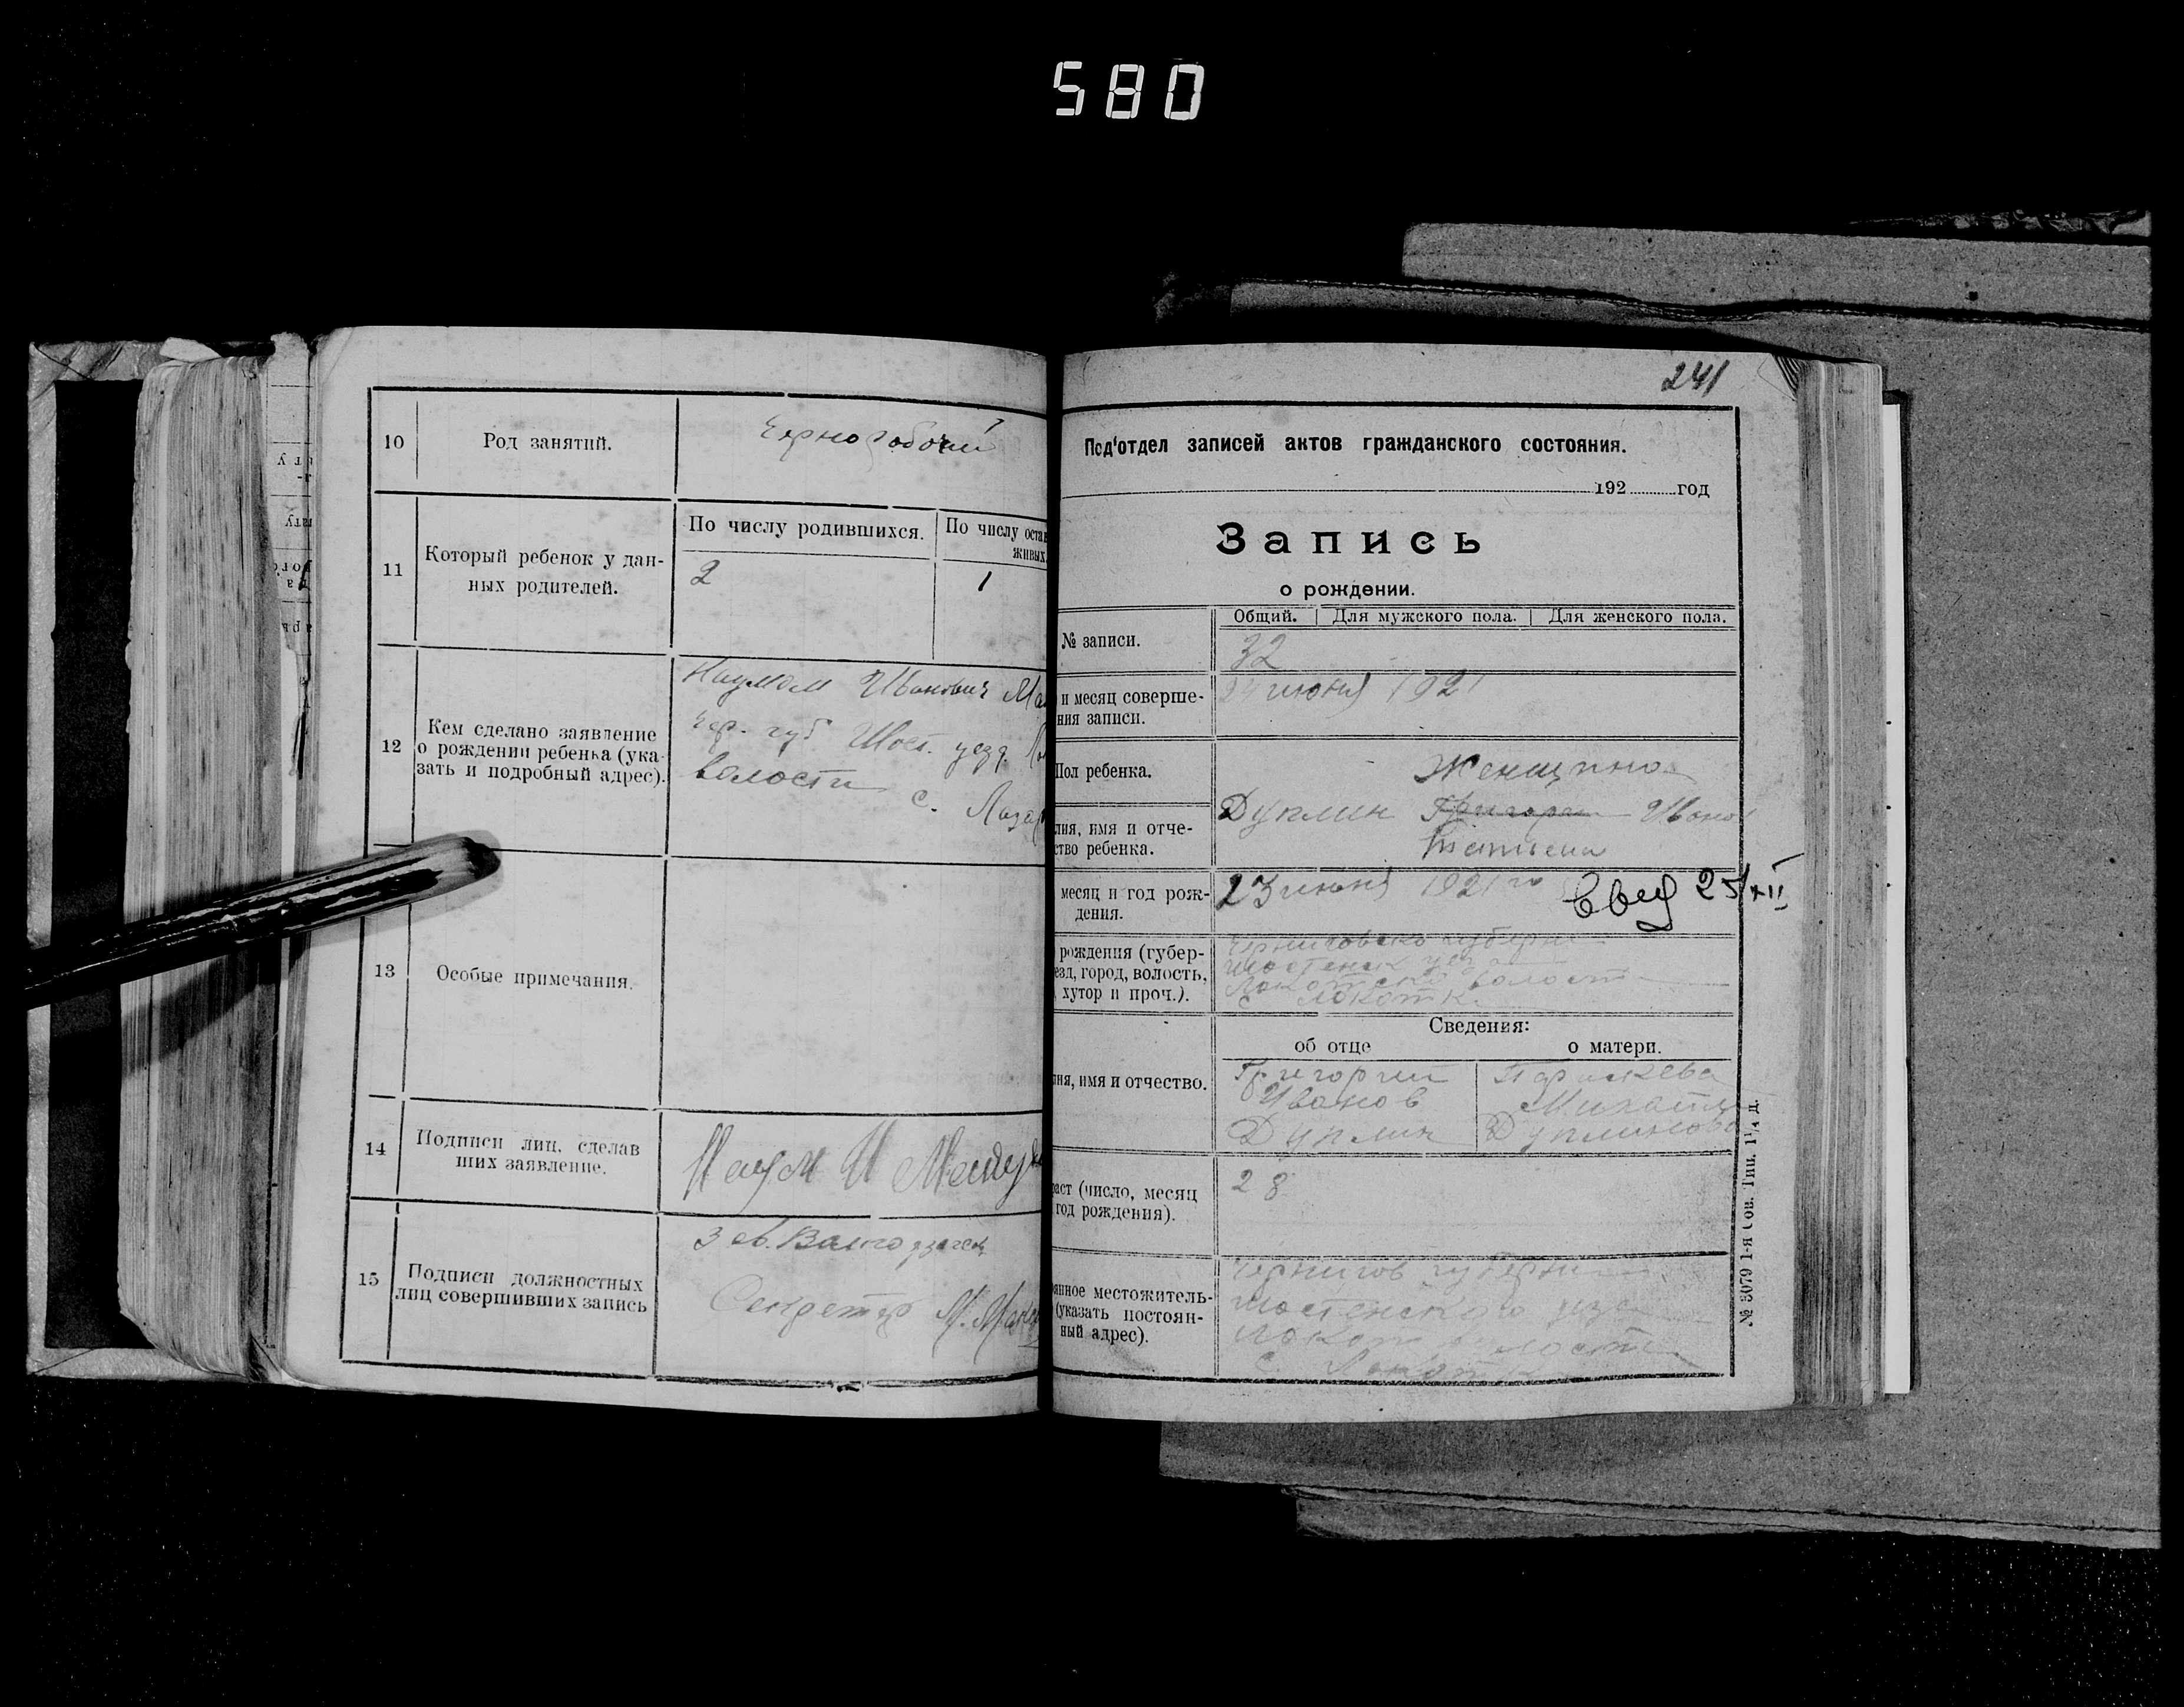 580
10
Род занятий.
Чернорабочий
11
Который ребенок у дан-
ных родителей.
По числу родившихся.
По числу остав
живых.
2
1
12
Кем сделано заявление
о рождении ребенка (ука-
зать и подробный адрес).
Наумом Иванович
Чер. губ Шост. уезд.
волости
с.
13
Особые примечания.
14
Подписи лиц, сделав
ших заявление.
Наум И
15
Подписи должностных
лиц совершивших запись
Зав.
Секретар М.
241
Под'отдел записей актов гражданского состояния.
192 год
Запись
о рождении.
Общий. Для мужского пола. Для женского пола.
№ записи.
32
и месяц соверше-
ния записи.
24 июня 1921
Пол ребенка.
Женщина
лия, имя и отче-
ство ребенка.
Дуплин Григорий Иванов
Татьяна
месяц и год рож-
дения.
23 июня 1921 го
Свид 25/XII
рождения (губер-
езд, город, волость,
, хутор и проч.).
Черниговско губерни
Шостенск уез
Локотской волост
с Локотк
Сведения:
об отце
о матери.
ия, имя и отчество.
Григорий
Иванов
Дуплин
Параскева
Дуплинова
раст (число, месяц
год рождения).
28
янное местожитель-
(указать постоян-
ный адрес).
Чернигов губерни
Шостенского уез
Локот волости
с. Локотк
№ 3079 1-я Сов. Тип. 1¼ д.